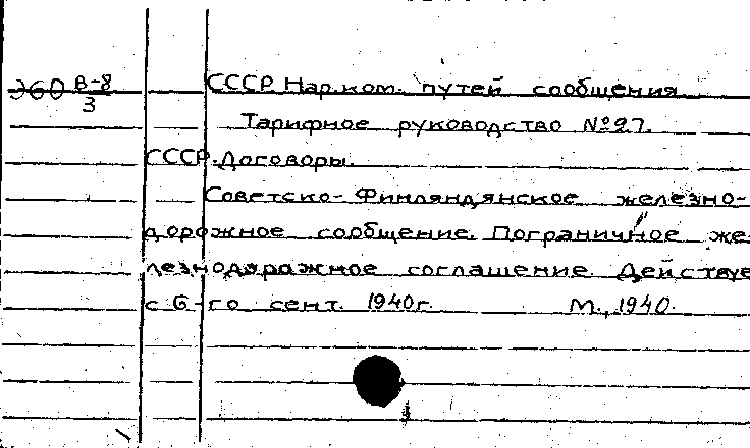 Э60 В-8/3 СССР Нар.ком. путей сообщения
Тарифное руководство №27.
СССР. Договоры.
Советско-Финляндянское железно-
дорожное сообщение. Пограничное же-
лезнодорожное соглашение. Действуе
с 6-го сент. 1940г. М., 1940.